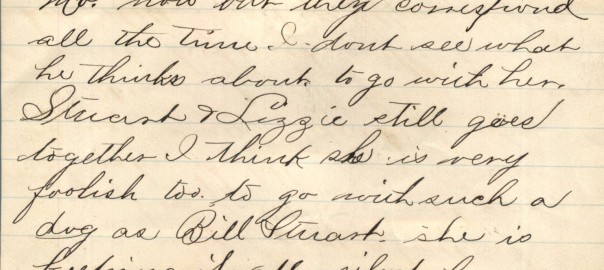 Mo. now but they correspond
all the time. I dont see what
he thinks about. to go with her.
Stuart & Lizzie still goes
together I think she is very
foolish too. to go with such a
dog as Bill Stuart. she is
keeping it all silent